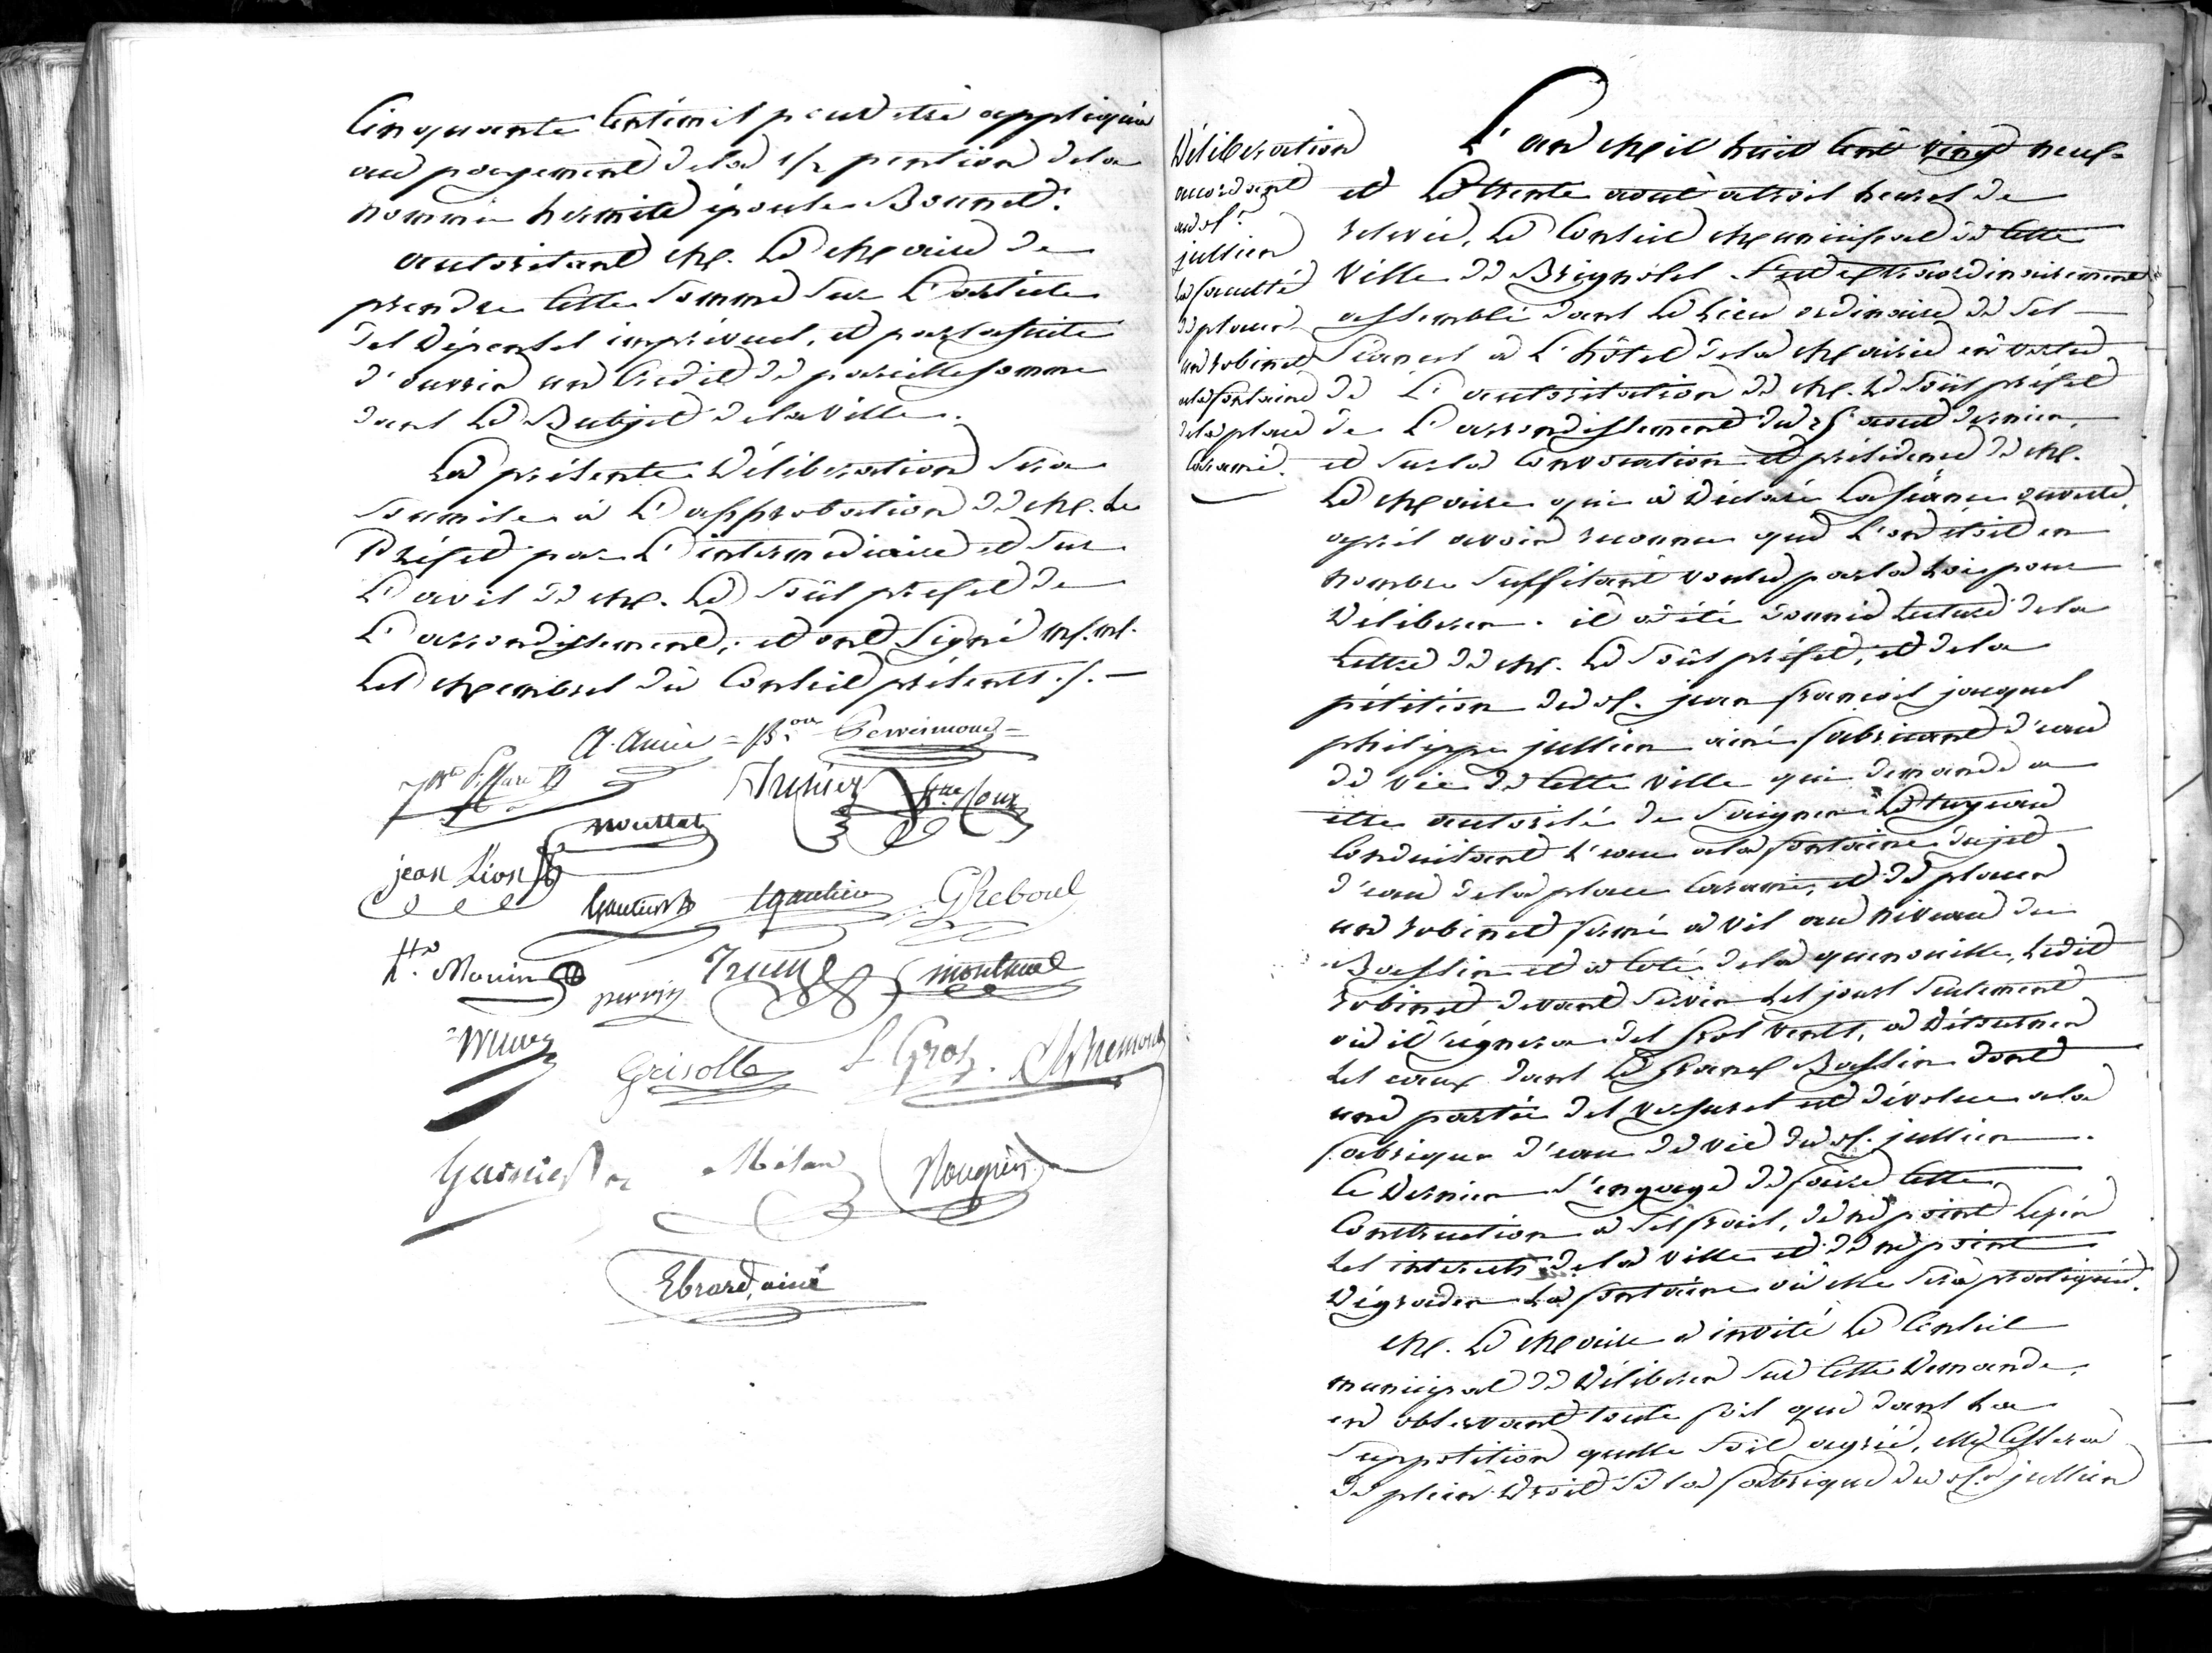 Cinquante Centimes peut etre appliquée
au payement de la 1/2 pention de la
nommée hermitte épouse Bonnet.
autorisant M. Le Maire de
prendre Cette Somme Sur L'article
des Dépenses imprévues, et par la suite
d'ouvrir un Crédit de pareille somme
dans Le Budjet de la Ville.
La présente Déliberation Sera
Soumise à L'approbation de M. Le
Préfet par L'intermediaire et Sur
L'avis de M. Le Sous préfet de
L'arrondissement; et ont Signé MM.
Les Membres du Conseil présents ./. —
A. Amic
jean Lion
Gautier
Gautier
G Reboul
h.te Mouin
perrin
montaud
Grisolle
L Gros
Garnier
Mélan
Nouguier
Ebrard, ainé
Déliberation
accordant
au S.r
jullien
la faculté
de placer
un robinet
à la fontaine
de la place
Carami.
L'an Mil huit Cent vingt neuf
et Le trente août à trois heures de
relevée, Le Conseil Municipal de Cette
Ville de Brignoles S'est extraordinairement
assemblé dans Le Lieu ordinaire de Ses
Séances à L'hôtel de la Mairie en vertu
de L'autorisation de M. Le Sous préfet
de L'arrondissement du août dernier,
et Sur la Convocation et présidence de M.
Le Maire qui a Déclaré La Séance ouverte,
après avoir reconnu que L'on étoit en
nombre Suffisant voulu par la Loi pour
Déliberer. il a été donné Lecture de la
Lettre de M. Le Sous préfet, et de la
pétition du S. jean françois jacques
philippe jullien ainé fabricant d'eau
de vie de Cette Ville qui demande a
etre autorisé de Saigner Le tuyeau
Conduisant L'eau a la fontaine du jet
d'eau de la place Carami, et de placer
un robinet fermé à vis au niveau du
Bassin et a Coté de la quenouille, Ledit
robinet devant Servir Les jours Seulement
où il régnera des gros vents, à Détourner
Les eaux dans Le grand Bassin dont
une partie des versures est dévolue a la
fabrique d'eau de vie du S. jullien.
Ce Dernier S'engage de faire Cette
Construction à Ses frais, de ne point Lezer
Les interets de la Ville et de ne point
Dégrader La fontaine où elle Sera pratiquée.
M. Le Maire a invité Le Conseil
municipal de Déliberer Sur Cette Demande,
en observant toute fois que dans La
Supposition quelle Soit agréé, elle Cessera
de plein Droit Si la fabrique du S. jullien